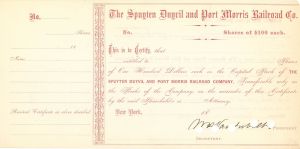 No.
Shares
The Spuyten Duyvil and Port Morris Railroad Co.
No.
Shares of $100 each.
This is to Certify, that
entitled to
of One Hundred Dollars each in the Capital Stock of THE
SPUYTEN DUYVIL AND PORT MORRIS RAILROAD COMPANY, Transferable only on
the Books of the Company on the surrender of this Certificate
by the said Shareholder or Attorney.
New York, 18
PRESIDENT
SECRETARY